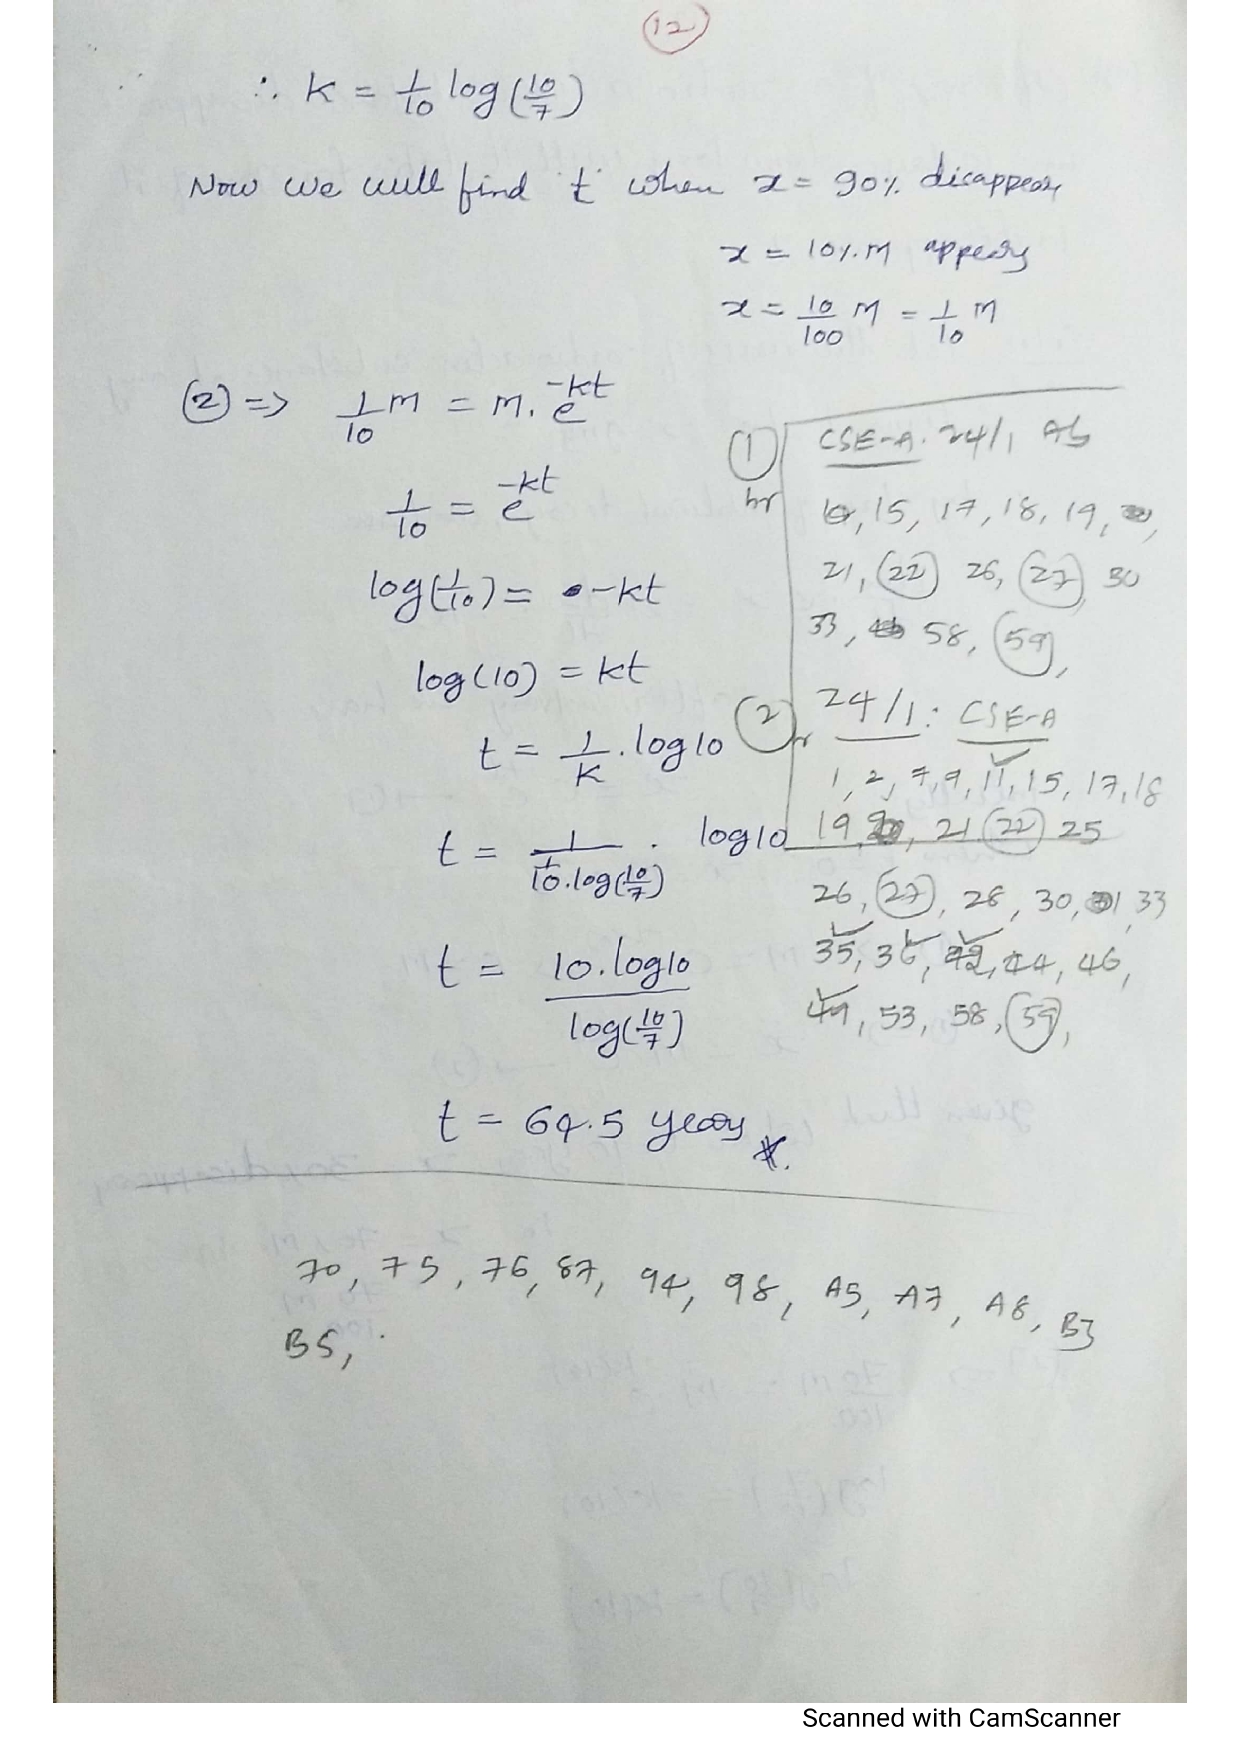 12
∴ K = 1/10 log(10/7)
Now we will find 't' when x = 90% disappears
x = 10% M appears
x = 10/100 M = 1/10 M
(2) => 1/10 M = M. e^-kt
1/10 = e^-kt
log(1/10) = -kt
log(10) = kt
t = 1/K . log10
t = 1/(1/10.log(10/7)) . log10
t = 10.log10/log(10/7)
t = 64.5 years
(1) hr CSE-A. 24/1 Ab
10, 15, 17, 18, 19,
21, 22 26, 27, 30
33, 58, 59,
(2) hr 24/1: CSE-A
1, 2, 7, 9, 11, 15, 17, 18
19, 21 22 25
26, 27, 28, 30, 31, 33
35, 36, 42, 44, 46,
49, 53, 58, 59,
70, 75, 76, 87, 94, 98, A5, A7, A8, B3
B5,
Scanned with CamScanner